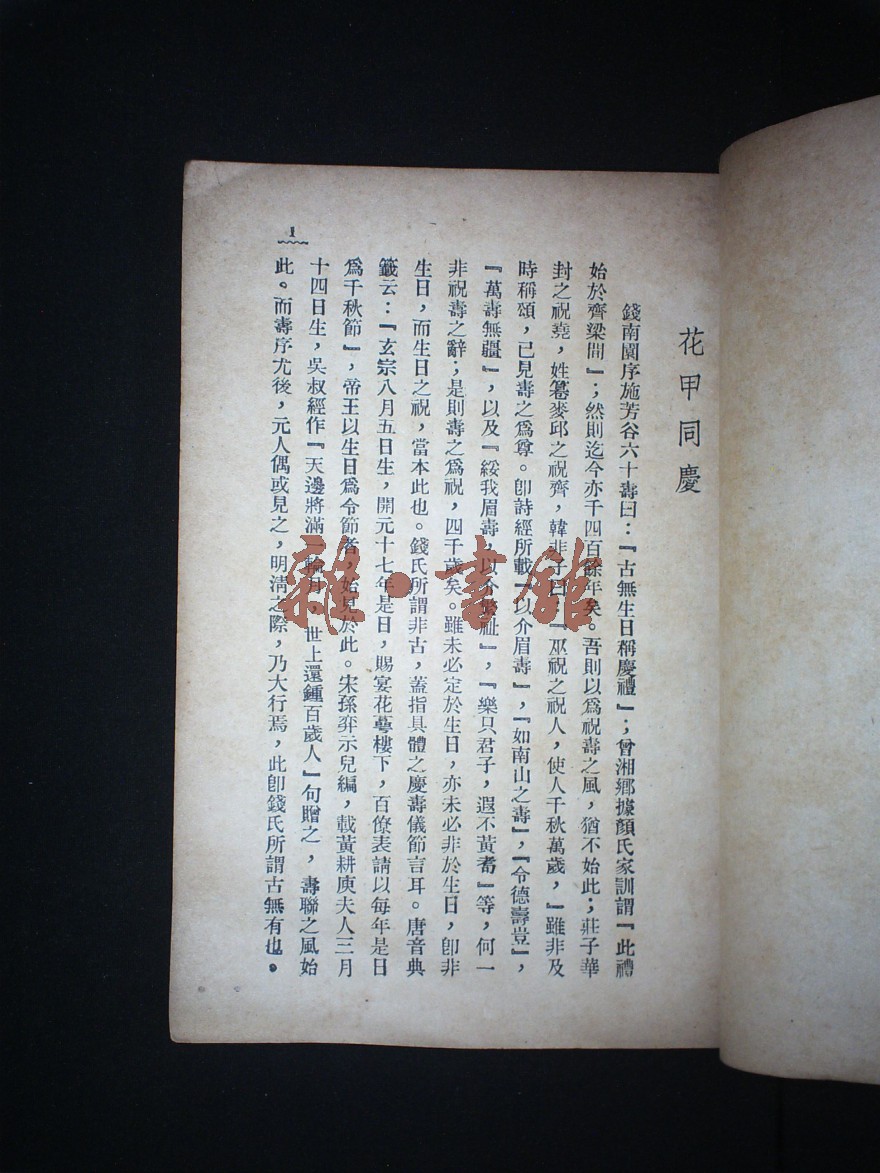 花甲同慶
錢南園序施芳谷六十壽曰：『古無生日稱慶禮』；曾湘鄉據顏氏家訓謂『此禮
始於齊梁間』；然則迄今亦千四百餘年矣。吾則以爲祝壽之風，猶不始此；莊子華
封之祝堯，姓纂麥邱之祝齊，韓非子曰『巫祝之祝人，使人千秋萬歲，』雖非及
時稱頌，已見壽之爲尊。卽詩經所載『以介眉壽』，『如南山之壽』，『令德壽豈』，
『萬壽無疆』，以及『綏我眉壽，以介繁祉』，『樂只君子，遐不黃耇』等，何一
非祝壽之辭；是則壽之爲祝，四千歲矣。雖未必定於生日，亦未必非於生日，卽非
生日，而生日之祝，當本此也。錢氏所謂非古，蓋指具體之慶壽儀節言耳。唐音典
籤云：『玄宗八月五日生，開元十七年是日，賜宴花萼樓下，百僚表請以每年是日
爲千秋節』，帝王以生日爲令節者，始見於此。宋孫弈示兒編，載黃耕庾夫人三月
十四日生，吳叔經作『天邊將滿一輪月，世上還鍾百歲人』句贈之，壽聯之風始
此。而壽序尤後，元人偶或見之，明淸之際，乃大行焉，此卽錢氏所謂古無有也。
1
雜·書館